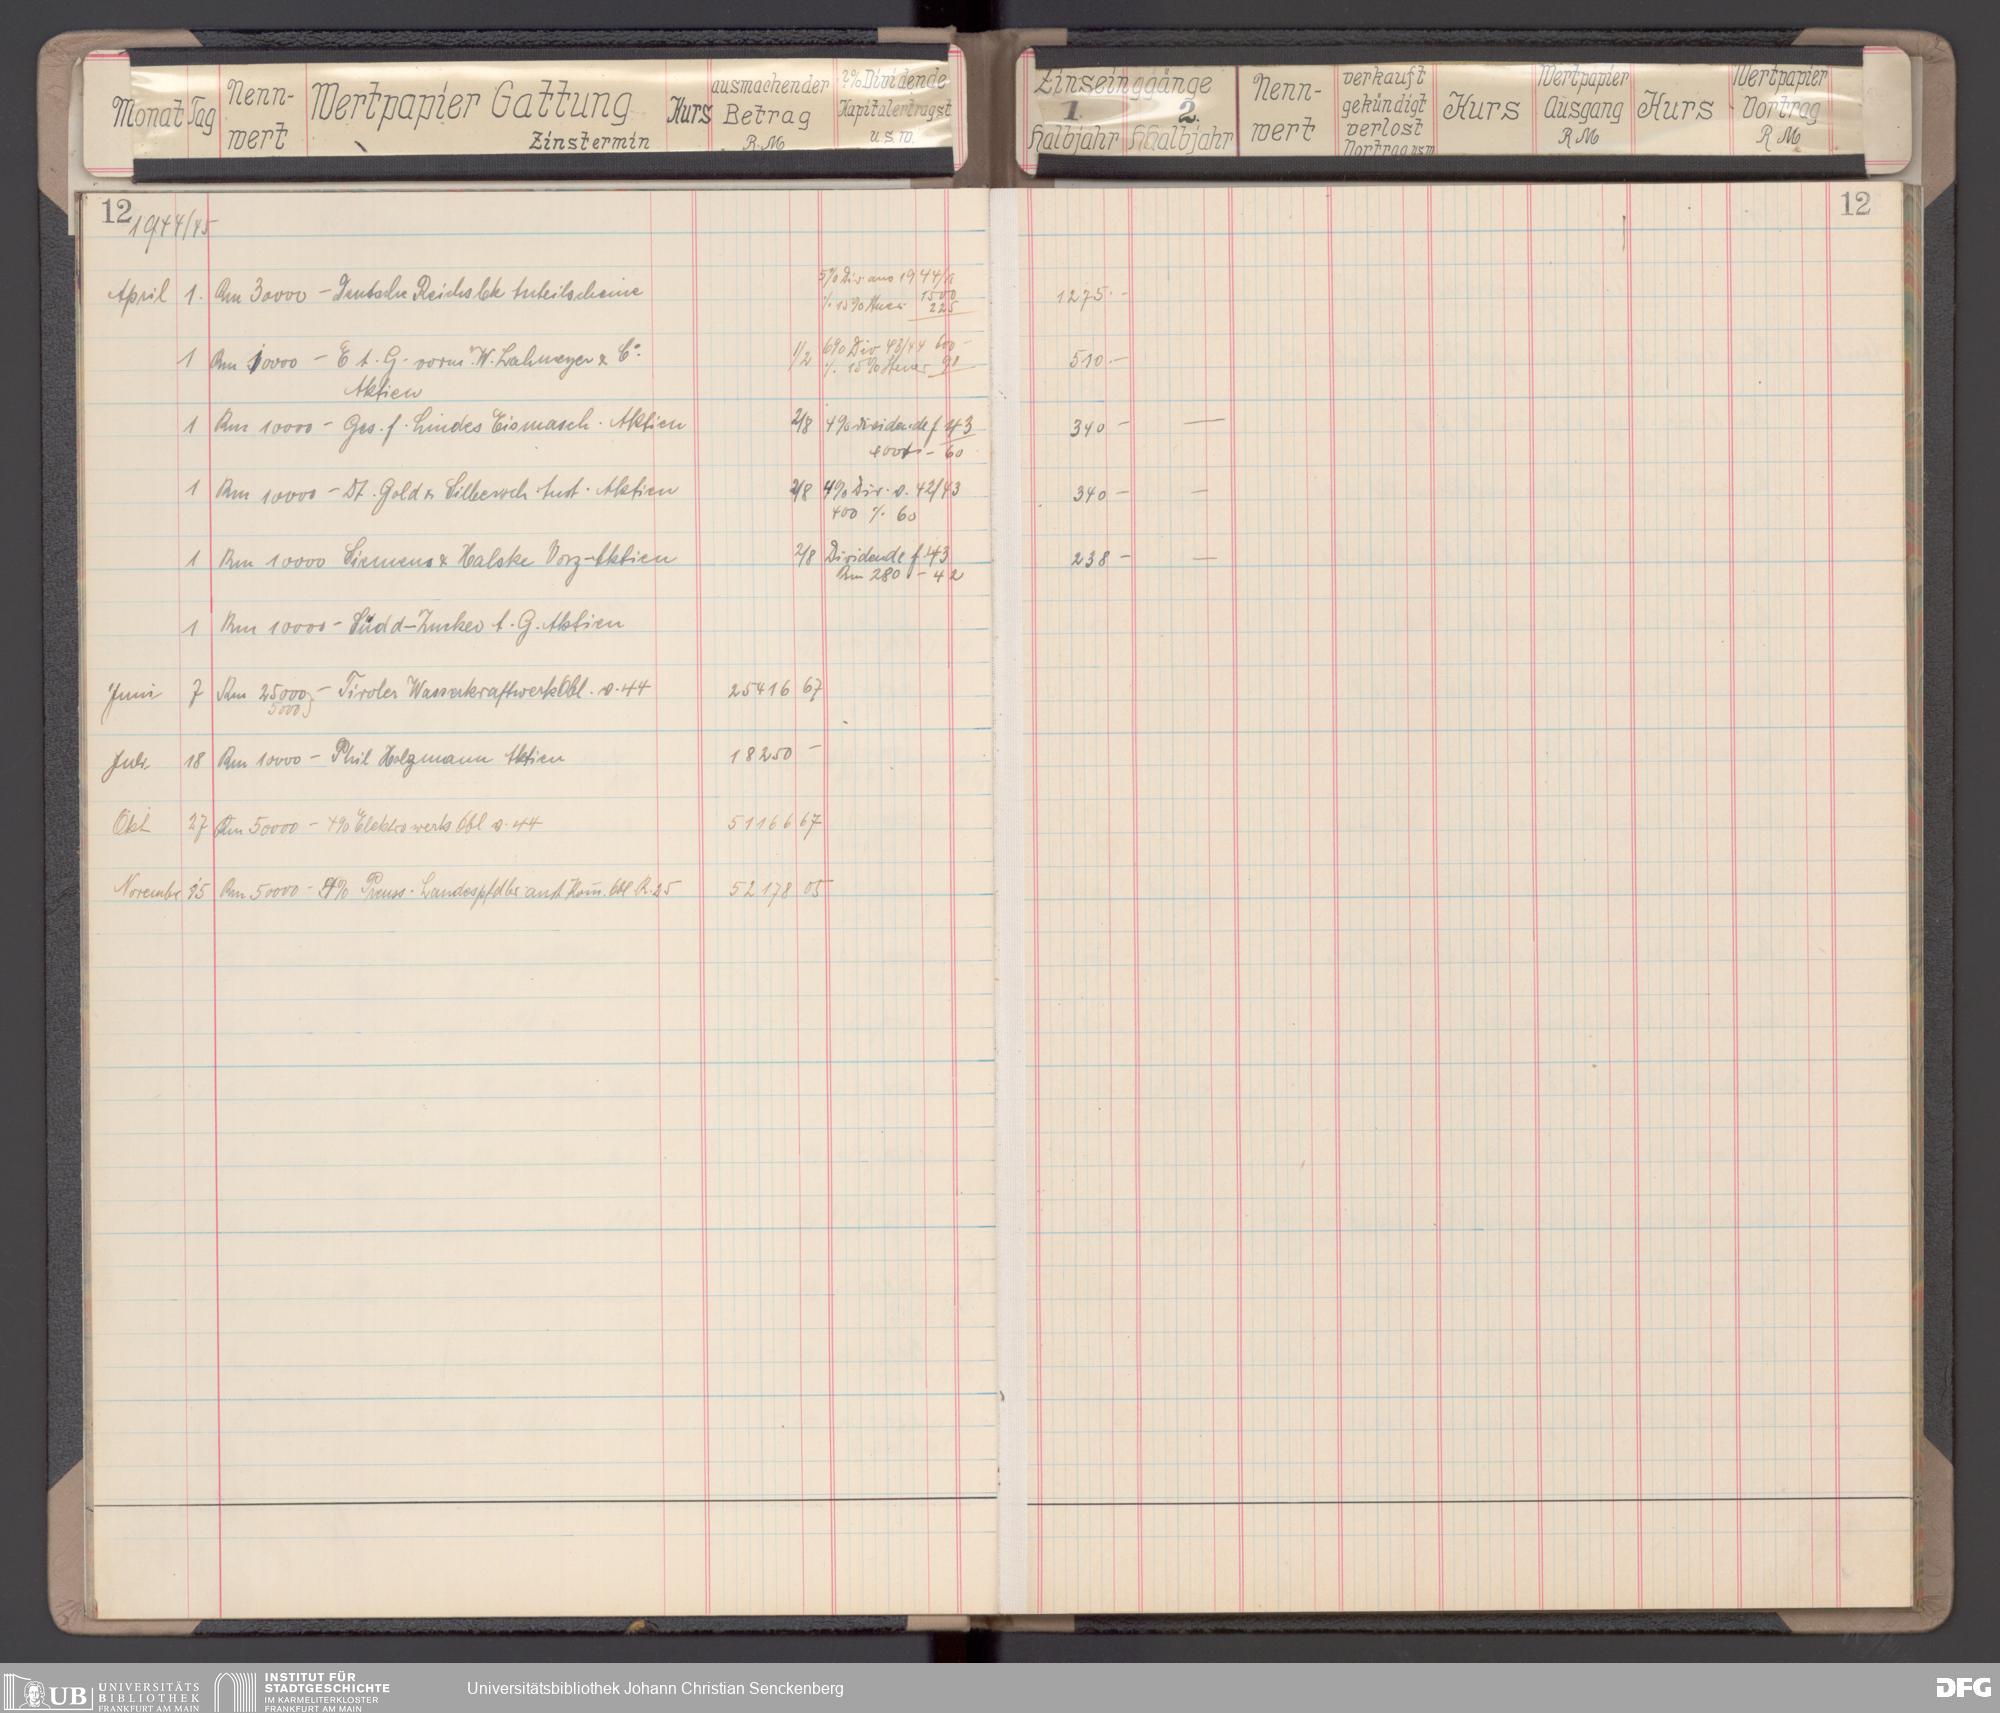 Monat Tag Nenn-wert Wertpapier Gattung Zinstermin Kurs ausmachender Betrag RM 2% Dividende Kapitalertragst u.s.w.
Zinseinggänge 1. Halbjahr 2. Halbjahr Nenn-wert verkauft gekündigt verlost Vortrag usw Kurs Wertpapier Ausgang RM Kurs Wertpapier Vortrag RM
12 12
1944/45
5% Div aus 1944
April 1. Rm 30000 – Deutsche Reichsbk Anteilscheine 1500 1275.–
% 15% Steuer 225
1 Rm 10000 – E A. G. vorm. W. Lahmeyer & Co. 1/2 6% Div 43/44 600 – 510.–
Aktien % 15% Steuer 90
1 Rm 10000 – Ges. f. Lindes Eismasch. Aktien 2/8 4% Dividende f 43 340 – —
400 – 60
1 Rm 10000 – Dt. Gold & Silbersch. Anst. Aktien 2/8 4% Div. v. 42/43 340 – —
400 % 60
1 Rm 10000 Siemens & Halske Vorz-Aktien 2/8 Dividende f 43 238 – —
Rm 280 – 42
1 Rm 10000 – Südd-Zucker A. G. Aktien
Juni 7 Rm 25000 – Tiroler Wasserkraftwerk Obl. v. 44 25416 67
5000
Juli 18 Rm 10000 – Phil Holzmann Aktien 18250 –
Okt 27 Rm 50000 – 4% Elektrowerk Obl v. 44 51166 67
Novembr 15 Rm 50000 – 4% Preuss. Landespfdbr anst Kom. Obl R. 25 52178 05
UB UNIVERSITÄTS
BIBLIOTHEK
FRANKFURT AM MAIN
INSTITUT FÜR
STADTGESCHICHTE
IM KARMELITERKLOSTER
FRANKFURT AM MAIN
Universitätsbibliothek Johann Christian Senckenberg
DFG